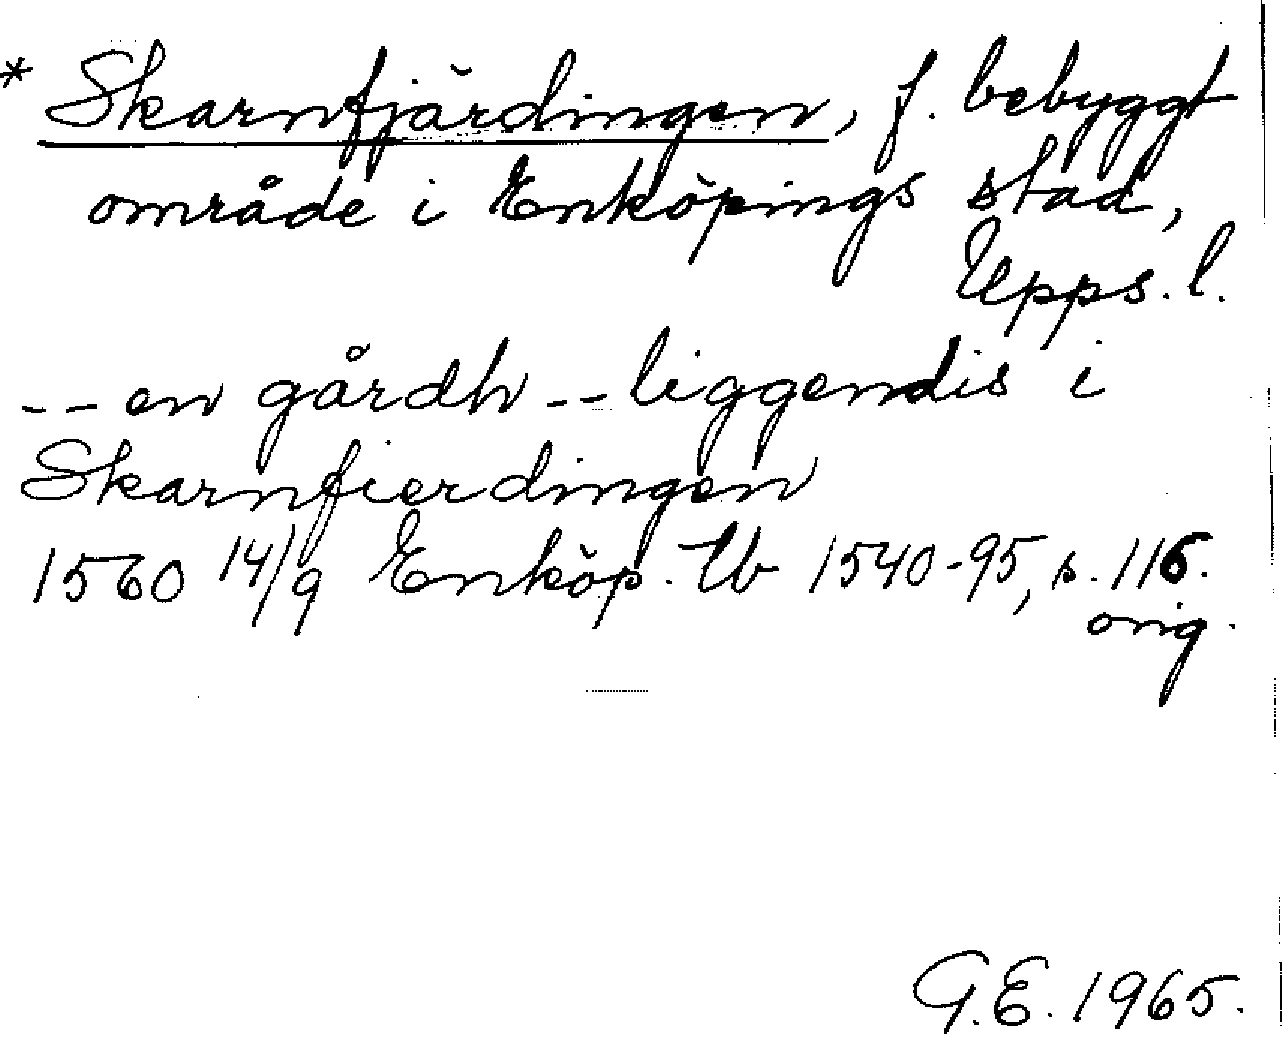 * Skarnfjärdingen, f. bebyggt
område i Enköpings stad,
Upps. l.
-- en gårdh -- liggendis i
Skarnfierdingen
1560 14/9 Enköp. Tb 1540-95, s. 116.
orig.
G.E. 1965.